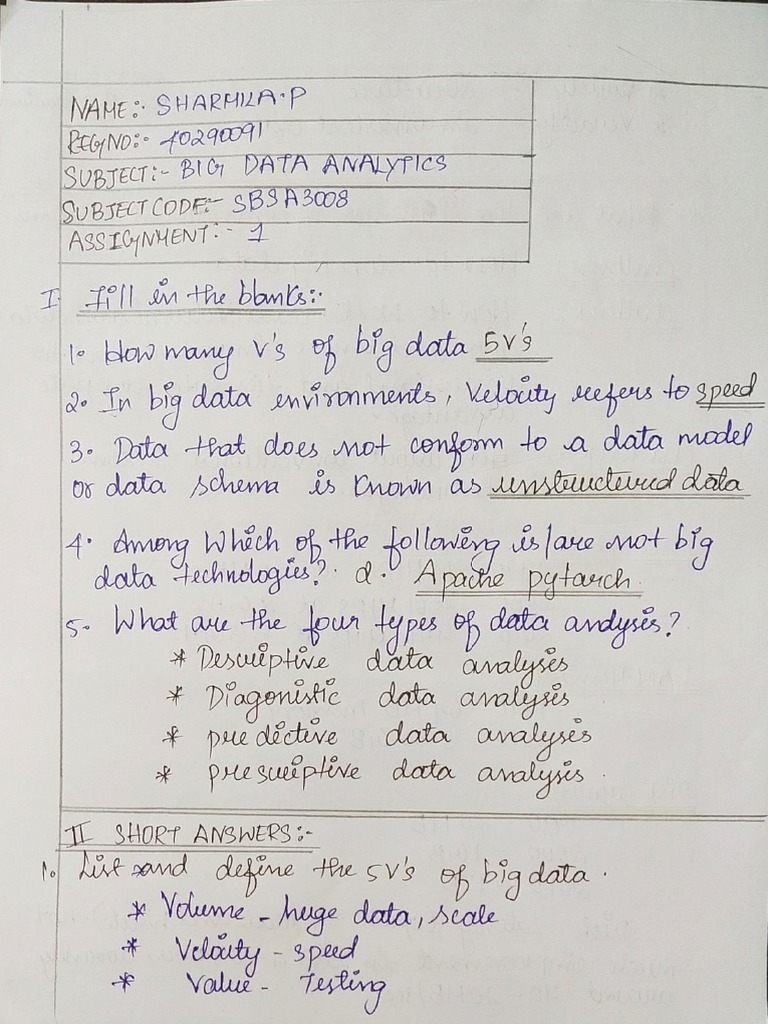 NAME:- SHARMILA.P
REGNO:- 40290091
SUBJECT:- BIG DATA ANALYTICS
SUBJECT CODE:- SBSA3008
ASSIGNMENT:- 1
I Fill in the blanks:-
1. How many V's of big data 5V's
2. In big data environments, Velocity refers to speed
3. Data that does not conform to a data model
or data schema is known as unstructured data
4. Among Which of the following is/are not big
data technologies? d. Apache pytarch.
5. What are the four types of data analysis?
* Descriptive data analysis
* Diagonistic data analysis
* predictive data analysis
* prescriptive data analysis.
II SHORT ANSWERS:-
1. List and define the 5V's of big data.
* Volume - huge data, scale
* Velocity - speed
* Value - Testing